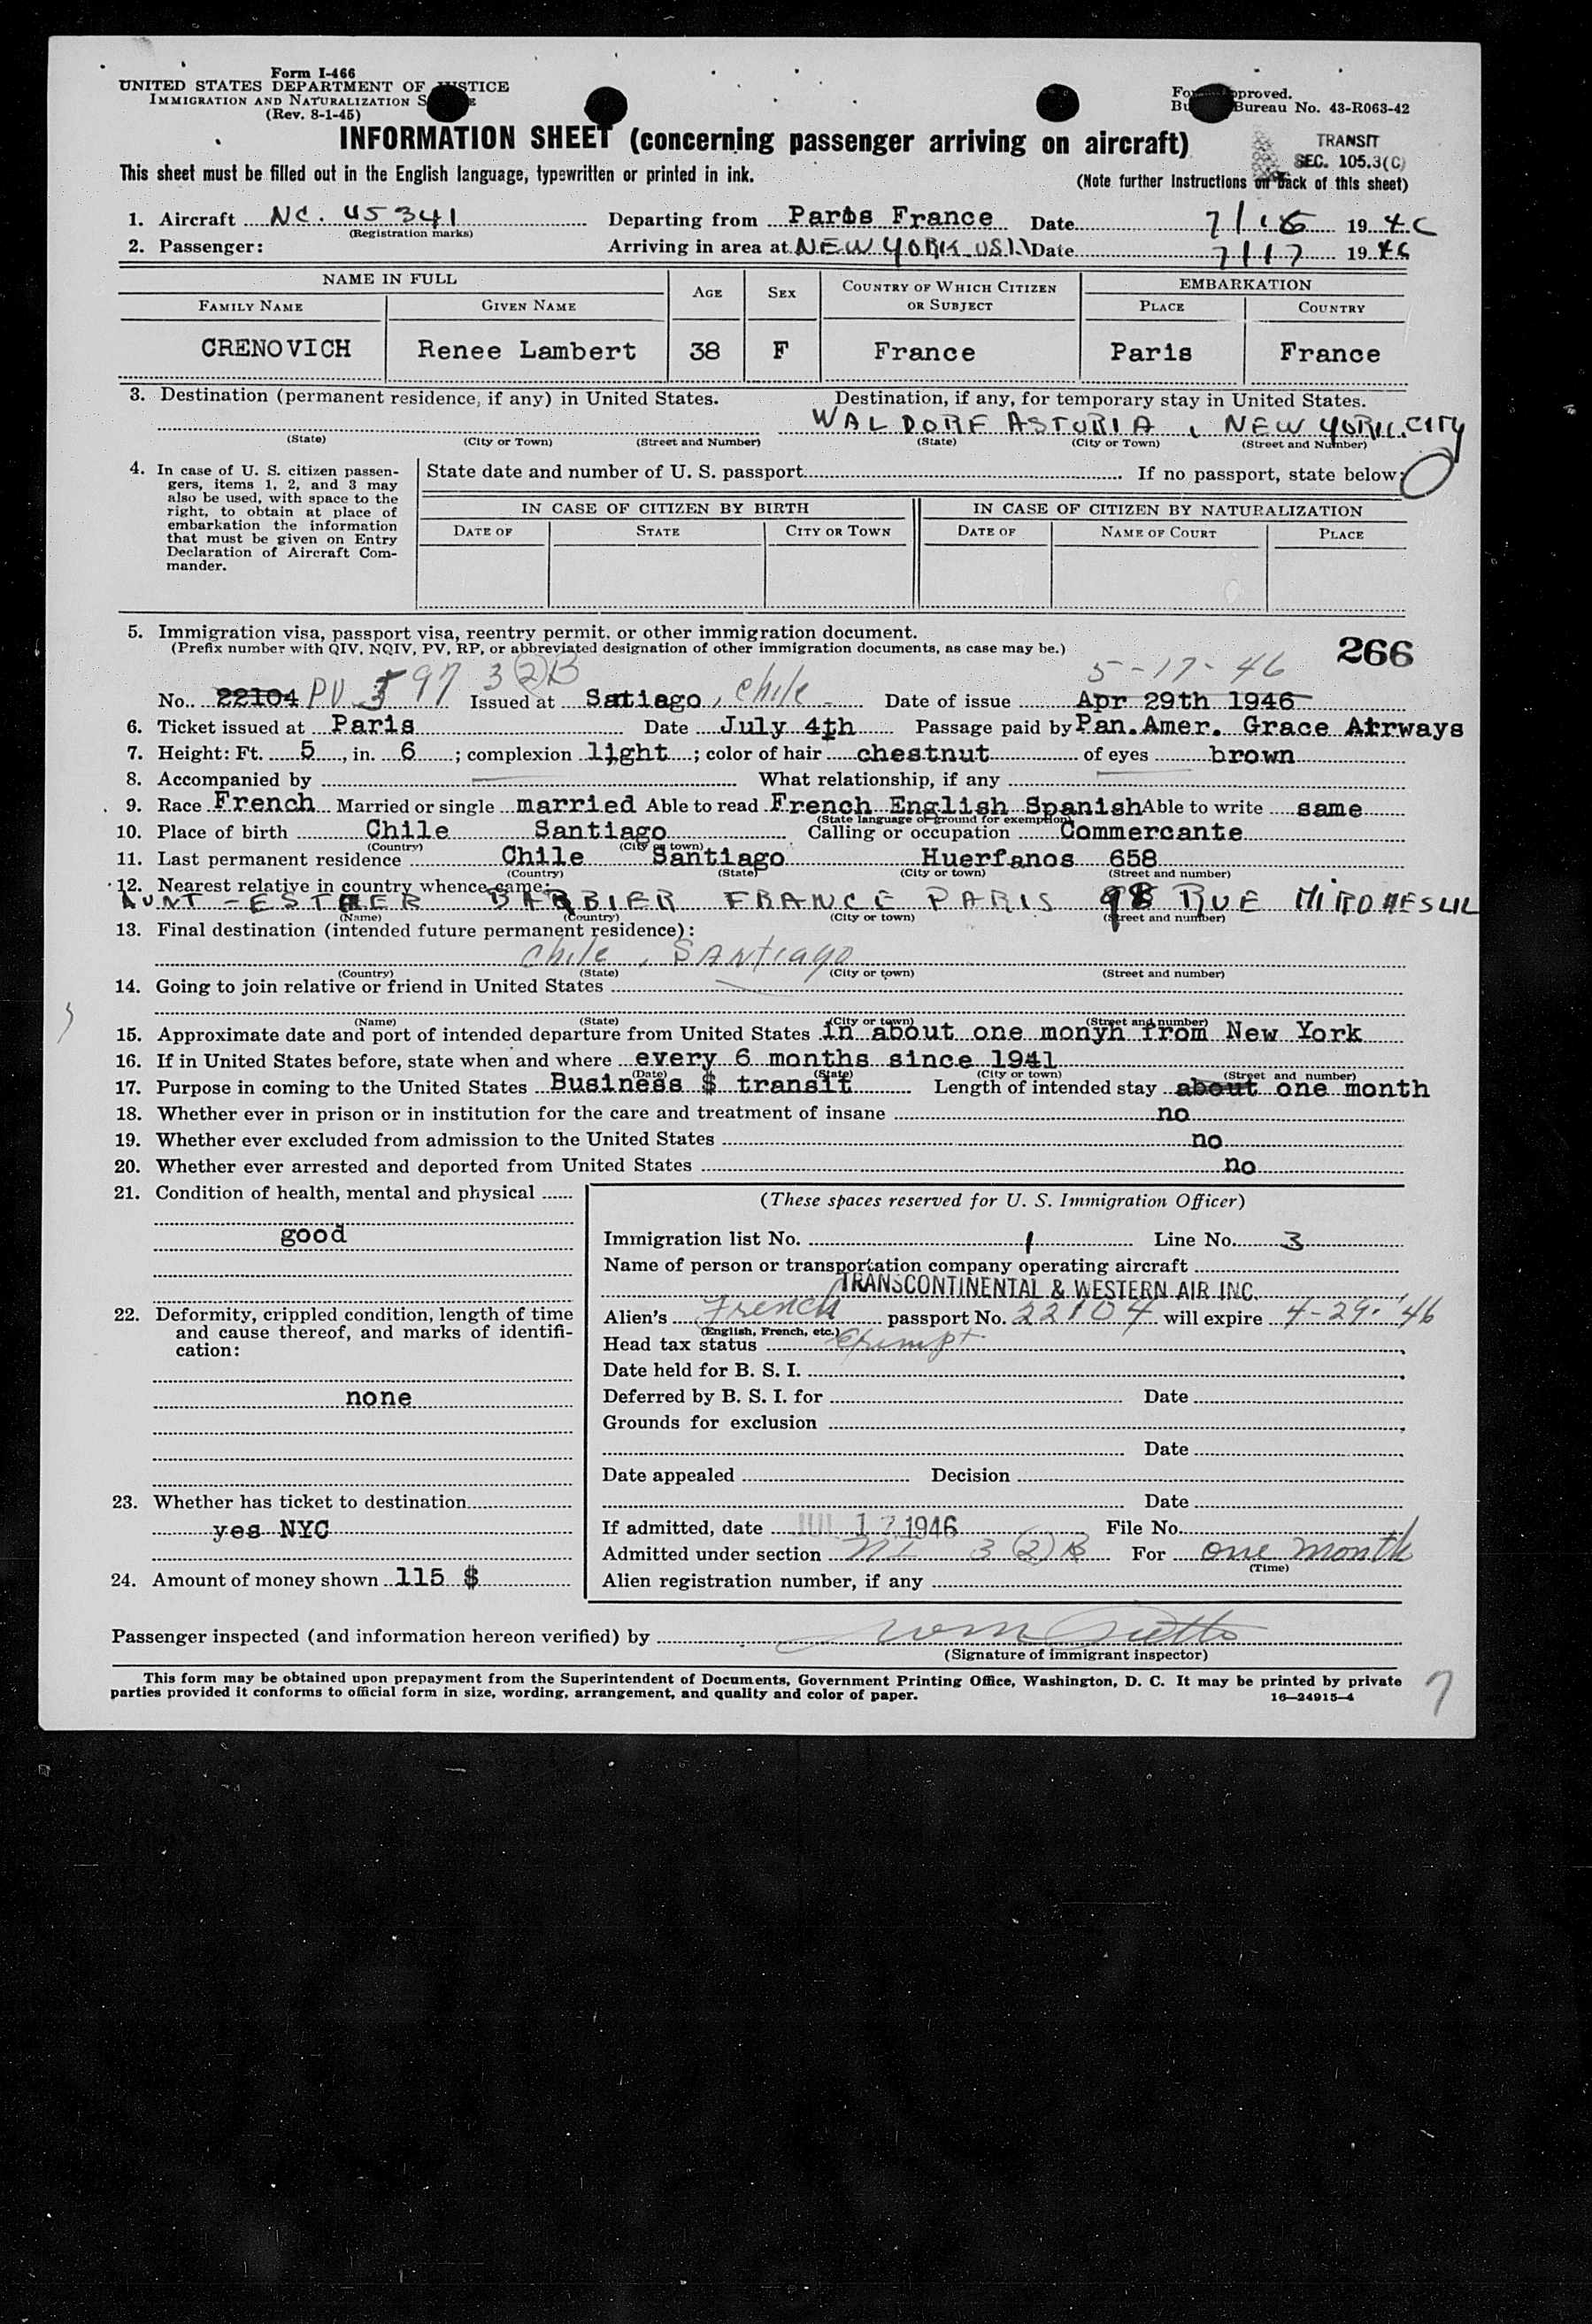 Form I-466
UNITED STATES DEPARTMENT OF JUSTICE
IMMIGRATION AND NATURALIZATION S E
(Rev. 8-1-45)
Form Approved.
Bu Bureau No. 43-R063-42
INFORMATION SHEET (concerning passenger arriving on aircraft)
TRANSIT
SEC. 105.3(C)
This sheet must be filled out in the English language, typewritten or printed in ink.
(Note further Instructions on back of this sheet)
1. Aircraft NC. 45341 Departing from Paris France Date 7/16 1946
(Registration marks)
2. Passenger: Arriving in area at NEW YORK USA Date 7/17 1946
NAME IN FULL AGE SEX COUNTRY OF WHICH CITIZEN OR SUBJECT EMBARKATION
FAMILY NAME GIVEN NAME PLACE COUNTRY
CRENOVICH Renee Lambert 38 F France Paris France
3. Destination (permanent residence, if any) in United States. Destination, if any, for temporary stay in United States.
WALDORF ASTORIA, NEW YORK CITY
(State) (City or Town) (Street and Number) (State) (City or Town) (Street and Number)
4. In case of U. S. citizen passen-
gers, items 1, 2, and 3 may
also be used, with space to the
right, to obtain at place of
embarkation the information
that must be given on Entry
Declaration of Aircraft Com-
mander.
State date and number of U. S. passport If no passport, state below:
IN CASE OF CITIZEN BY BIRTH IN CASE OF CITIZEN BY NATURALIZATION
DATE OF STATE CITY OR TOWN DATE OF NAME OF COURT PLACE
5. Immigration visa, passport visa, reentry permit, or other immigration document.
(Prefix number with QIV, NQIV, PV, RP, or abbreviated designation of other immigration documents, as case may be.)
266
3(2)B 5-17-46
No. 22104 PV 597 Issued at Satiago, Chile Date of issue Apr 29th 1946
6. Ticket issued at Paris Date July 4th Passage paid by Pan.Amer. Grace Airways
7. Height: Ft. 5, in. 6; complexion light; color of hair chestnut of eyes brown
8. Accompanied by What relationship, if any
9. Race French Married or single married Able to read French English Spanish Able to write same
(State language or ground for exemption)
10. Place of birth Chile Santiago Calling or occupation Commercante
(Country) (City or town)
11. Last permanent residence Chile Santiago Huerfanos 658
(Country) (State) (City or town) (Street and number)
12. Nearest relative in country whence came:
AUNT - ESTHER BARBIER FRANCE PARIS 98 RUE MIROMESLIL
(Name) (Country) (City or town) (Street and number)
13. Final destination (intended future permanent residence):
Chile, Santiago
(Country) (State) (City or town) (Street and number)
14. Going to join relative or friend in United States
(Name) (State) (City or town) (Street and number)
15. Approximate date and port of intended departure from United States in about one monyh from New York
16. If in United States before, state when and where every 6 months since 1941
(Date) (State) (City or town) (Street and number)
17. Purpose in coming to the United States Business $ transit Length of intended stay about one month
18. Whether ever in prison or in institution for the care and treatment of insane no
19. Whether ever excluded from admission to the United States no
20. Whether ever arrested and deported from United States no
21. Condition of health, mental and physical
good
22. Deformity, crippled condition, length of time
and cause thereof, and marks of identifi-
cation:
none
23. Whether has ticket to destination
yes NYC
24. Amount of money shown 115 $
(These spaces reserved for U. S. Immigration Officer)
Immigration list No. 1 Line No. 3
Name of person or transportation company operating aircraft
TRANSCONTINENTAL & WESTERN AIR INC.
Alien's French passport No. 22104 will expire 4-29-'46
(English, French, etc.)
Head tax status Exempt
Date held for B. S. I.
Deferred by B. S. I. for Date
Grounds for exclusion
Date
Date appealed Decision
Date
If admitted, date JUL 17 1946 File No.
Admitted under section 3(2)B For one month
(Time)
Alien registration number, if any
Passenger inspected (and information hereon verified) by
(Signature of immigrant inspector)
This form may be obtained upon prepayment from the Superintendent of Documents, Government Printing Office, Washington, D. C. It may be printed by private
parties provided it conforms to official form in size, wording, arrangement, and quality and color of paper.
16—24915-4
7